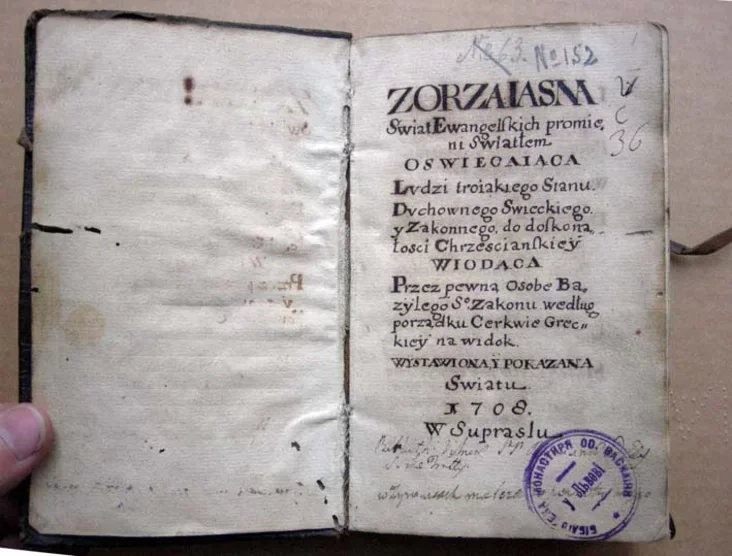 No 63. No 152
V
C
36
ZORZA IASNA
Swiat Ewangelſkich promie,
ni Swiatłem
OSWIECAIĄCA
Ludzi troiakiego Stanu.
Dvchownego Swieckiego.
y Zakonnego, do doſkona,
łosci Chrześcianſkiey
WIODĄCA
Przez pewną Osobę Ba,
zylego So Zakonu według
porządku Cerkwie Grec,,
kiey na widok.
WYSTAWIONA, Y POKAZANA
Swiatu.
1708.
W Supraslu
БІБЛІОТЕКА МОНАСТИРЯ ОО. ВАСИЛІЯН
у Львові